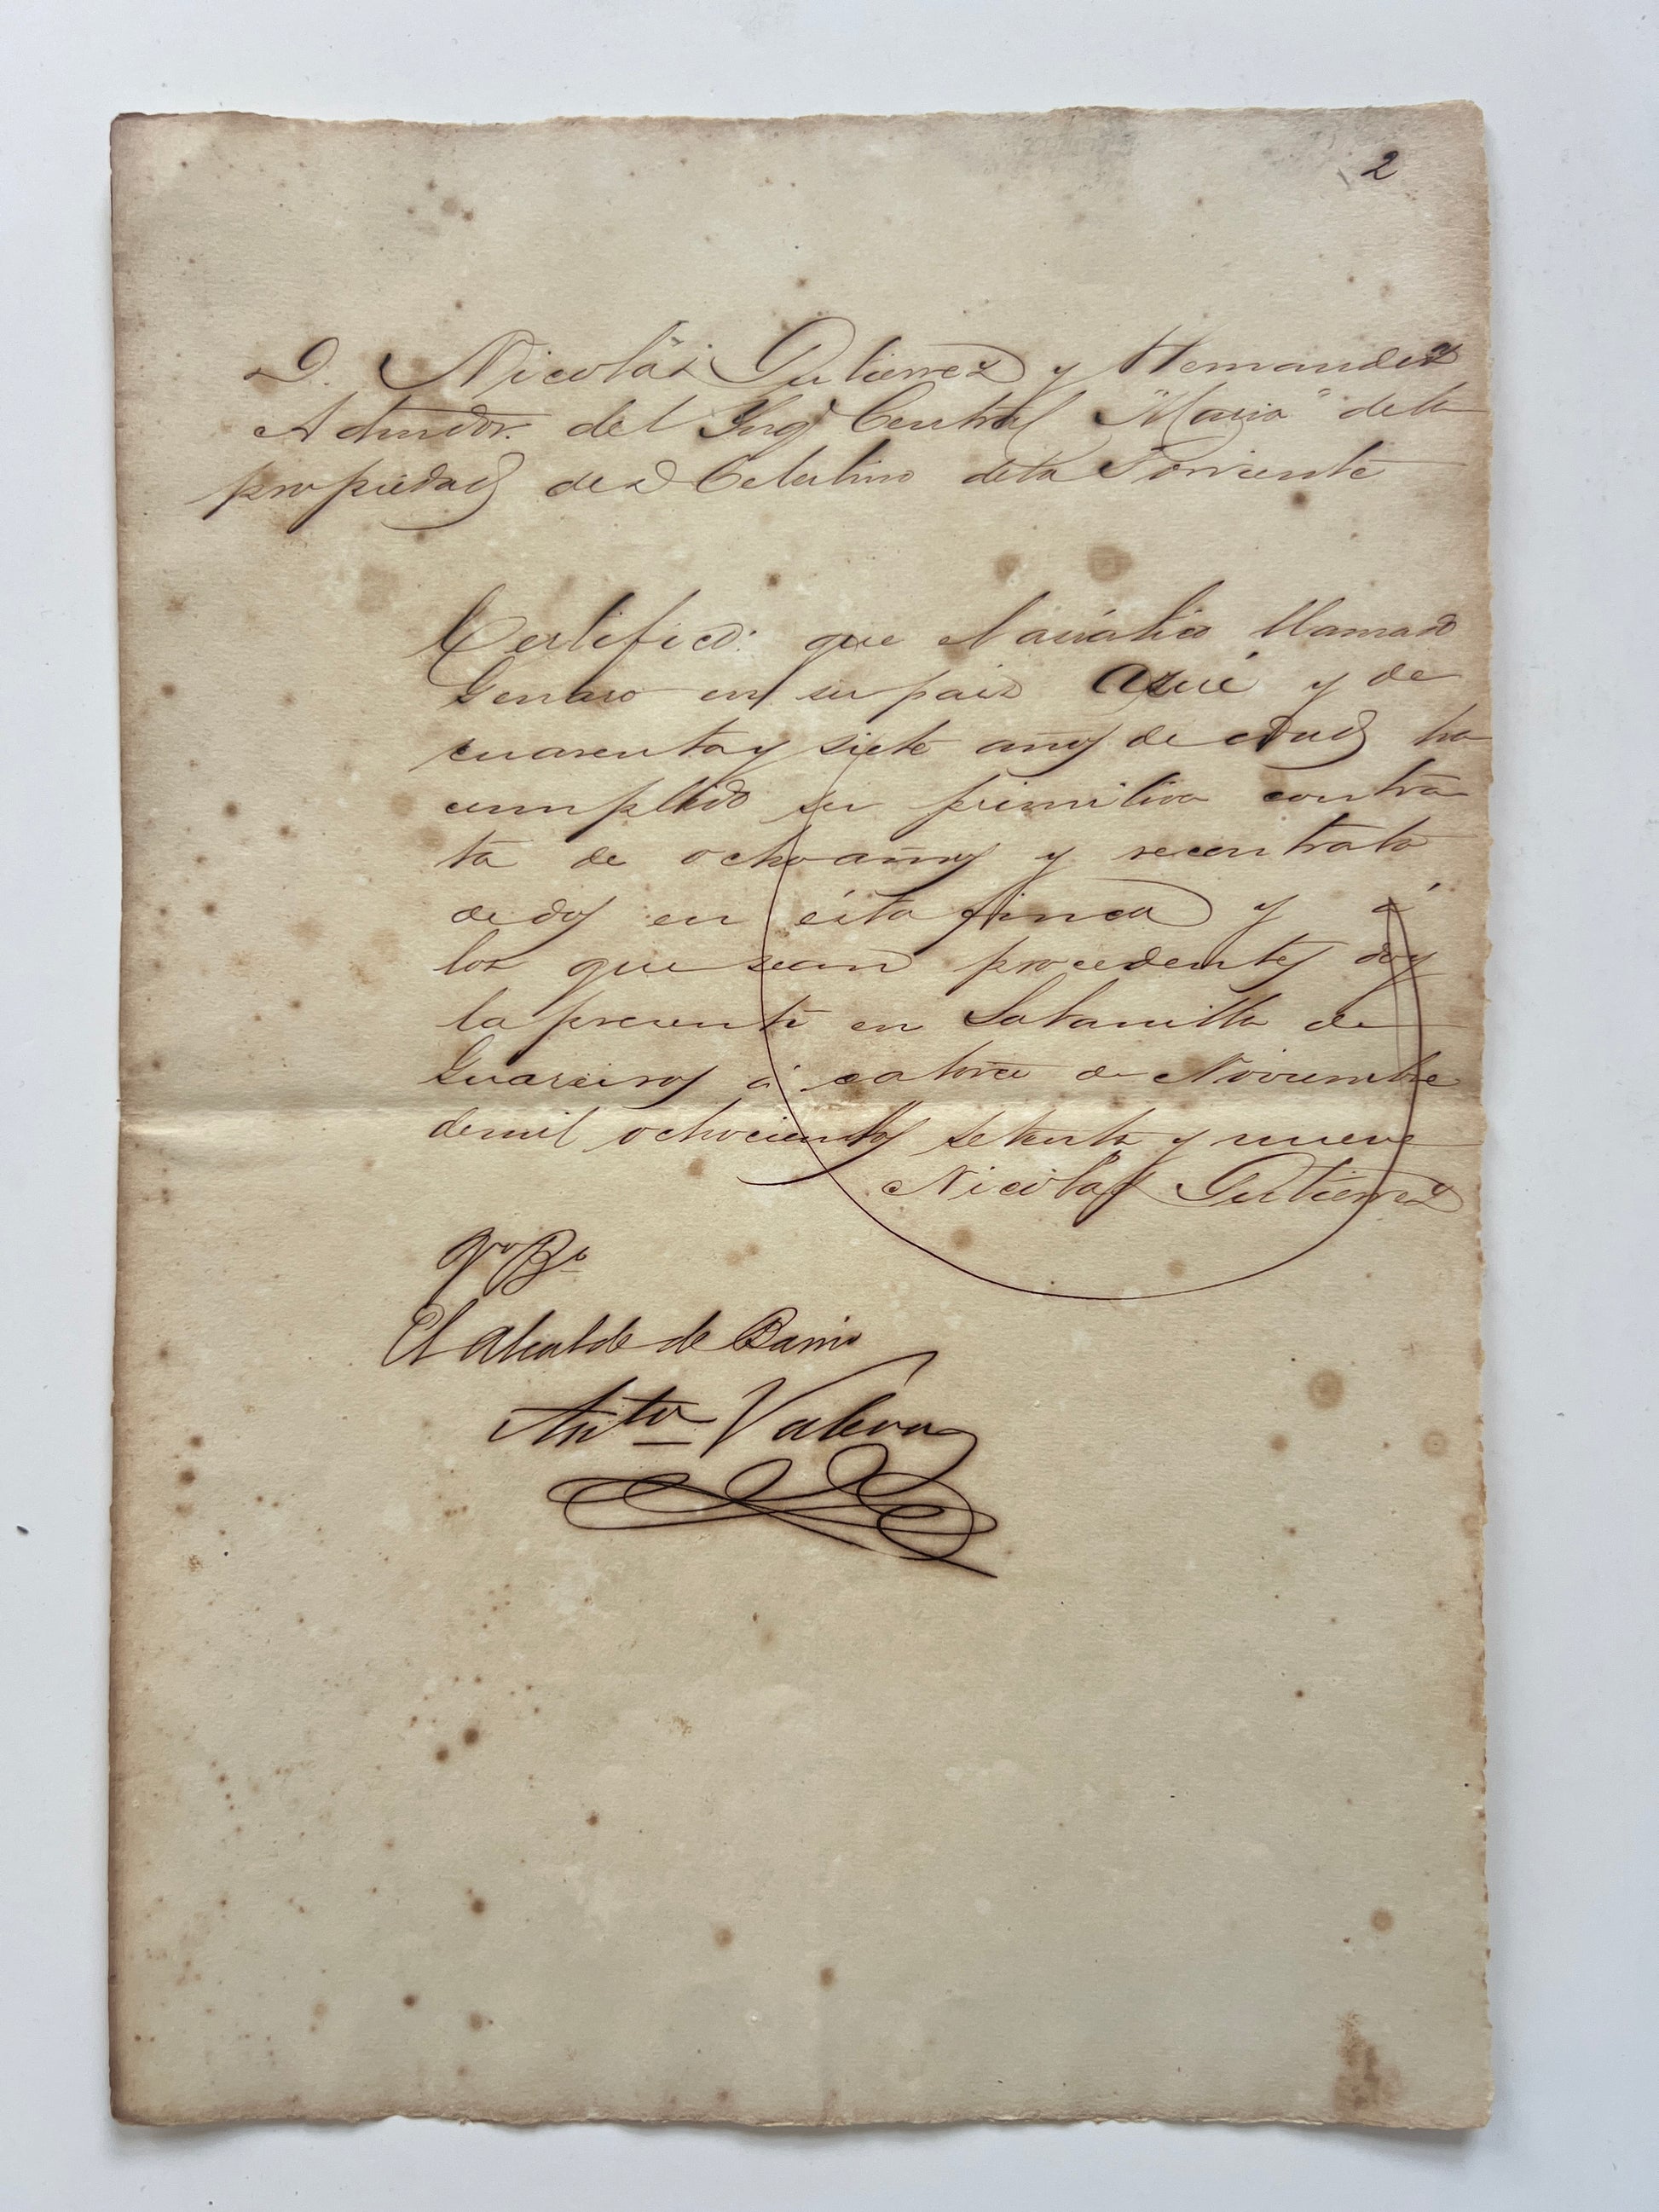 2
D. Nicolás Gutierrez y Hernandez
Admdor. del Yng.º Central "Maria" dela
propiedad de D Celestino dela Torriente
Certifico: que el asiatico llamado
Genaro en su pais Asué y de
cuarenta y siete años de edad ha
cumplido su primitiva contra
ta de ocho años y recontrata
de dos en ésta finca y á
los que sean procedentes doy
la presente en Sabanilla de
Guareiras á catorce de Noviembre
demil ochocientos setenta y nueve
Nicolas Gutierrez
Vº Bº
El Alcalde de Barrio
Antº